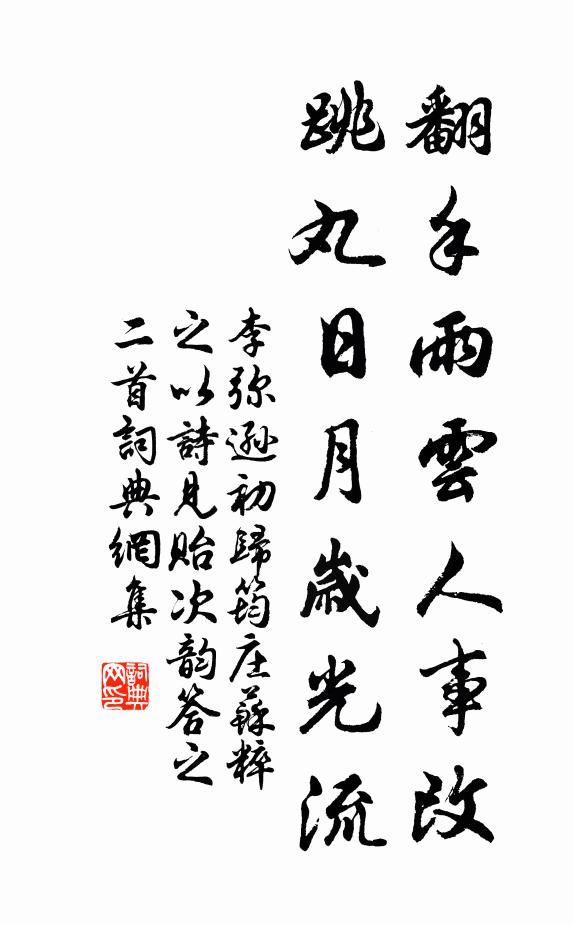 翻手雨雲人事改
跳丸日月歲光流
李弥遜初歸筠庄蘇粹
之以詩見貽次韵答之
二首詞典網集
詞典网印